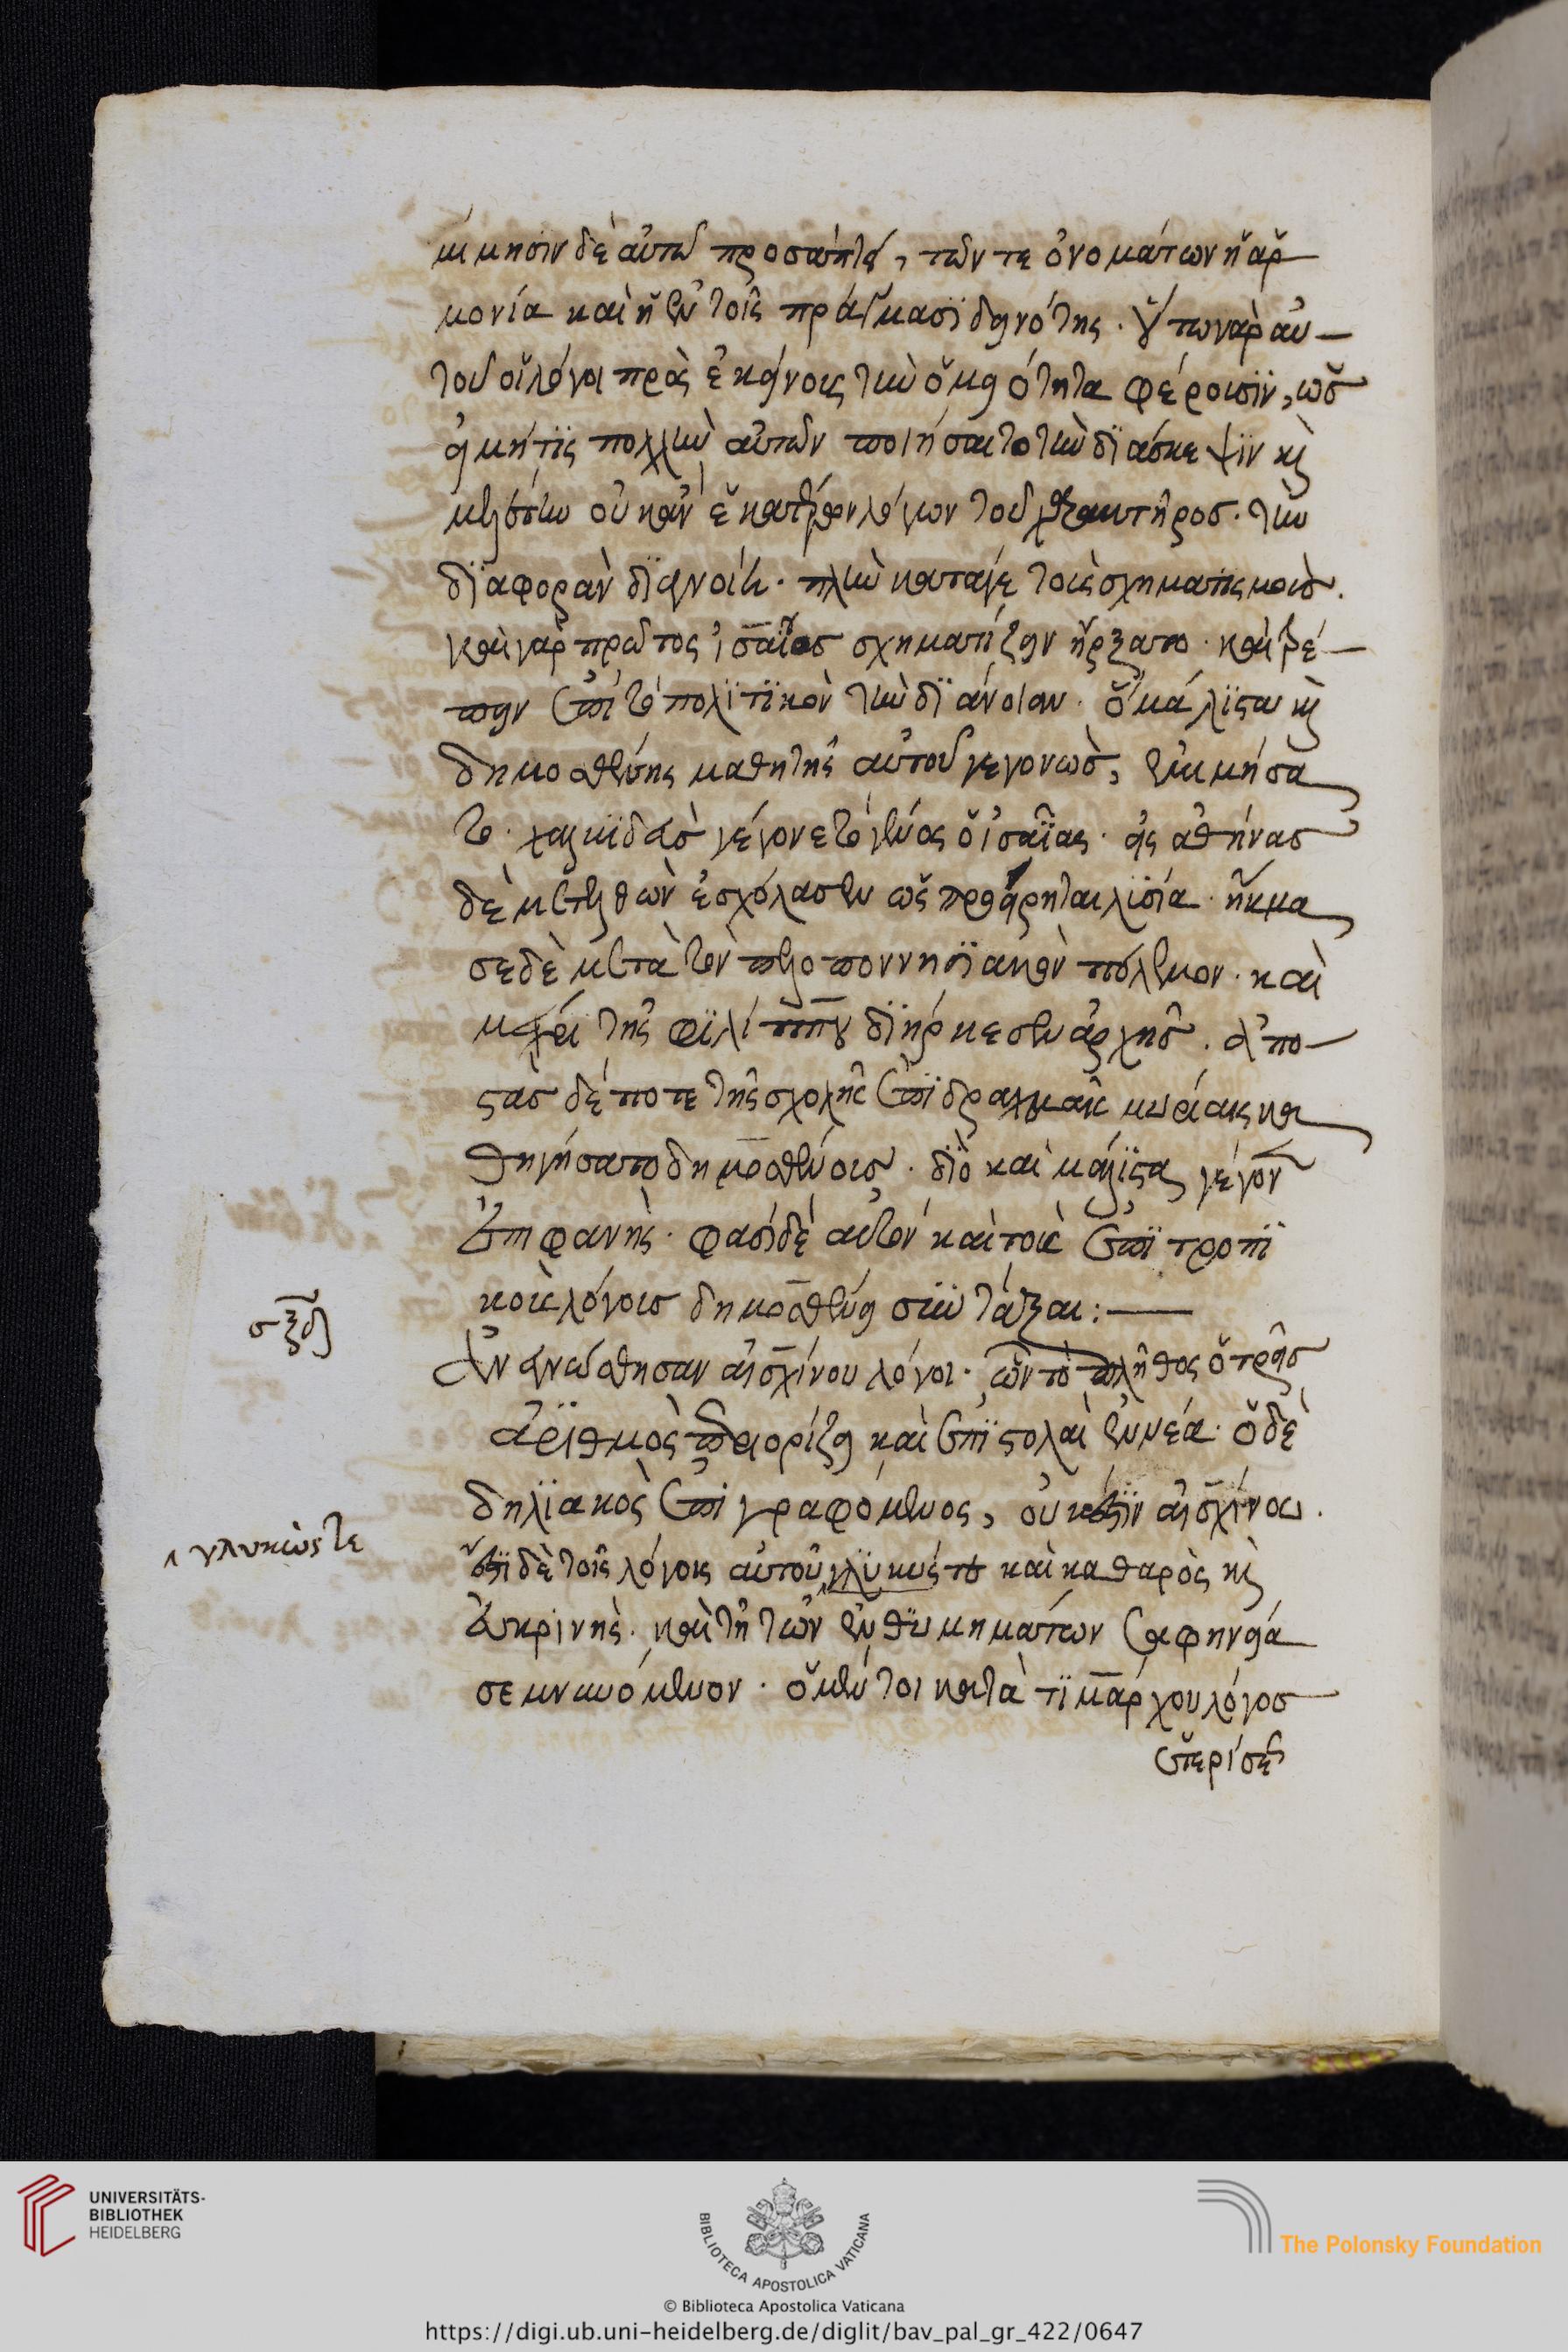 μίμησιν δὲ αὐτῶ προσάπτει, τῶν τε ὀνομάτων ἡ ἁρ
μονία καὶ ἡ ἐν τοῖς πράγμασι δεινότης. οὕτω γὰρ αὐ
τοῦ οἱ λόγοι πρὸς ἐκείνους τὴν ὁμοιότητα φέρουσιν, ὡς
εἰ μή τις πολλὴν αὐτῶν ποιήσαιτο τὴν διάσκεψιν καὶ
μεγίστην οὐκ ἂν ἑκατέρων λόγων τοῦ χαρακτῆρος τὴν
διαφορὰν διαγνοίη. πλὴν κατά γε τοὺς σχηματισμούς.
καὶ γὰρ πρῶτος ἰσαῖος σχηματίζειν ἤρξατο. καὶ τρέ
πειν ἐπὶ τὸ πολιτικὸν τὴν διάνοιαν. ὃ μάλιστα καὶ
δημοσθένης μαθητὴς αὐτοῦ γεγονώς, ἐμιμήσα
το. χαλκιδεὺς γέγονε τὸ γένος ὁ ἰσαῖας. εἰς ἀθήνας
δὲ μετελθὼν ἐσχόλασεν ὡς προείρηται λισία. ἤκμα
σε δὲ μετὰ τὸν πελοποννησιακὸν πόλεμον. καὶ
μέχρι τῆς φιλίππου διήρκεσεν ἀρχῆς. ἀπο
στὰς δέ ποτε τῆς σχολῆς ἐπὶ δραχμαῖς μυρίαις κα
θηγήσατο δημοσθένους. διὸ καὶ μάλιστα γέγον
ἐπιφανής. φασὶ δὲ αὐτὸν καὶ τοὺς ἐπιτροπι
κοὺς λόγους δημοσθένει συντάξαι:
σξδ
Ἀνεγνώσθησαν αἰσχίνου λόγοι. ὧν τὸ πλῆθος ὁ τρεῖς
ἀριθμὸς περιορίζει καὶ ἐπιστολαὶ ἐννέα. ὁ δὲ
δηλιακὸς ἐπιγραφόμενος, οὐκ ἔστιν αἰσχίνου.
γλυκύς τε
ἔστι δὲ τοῖς λόγοις αὐτοῦ γλυκύς τε καὶ καθαρὸς καὶ
εὐκρινὴς. καὶ τῇ τῶν ἐνθυμημάτων σαφηνεία
σεμνυνόμενον. ὁ μέντοι κατὰ τιμάρχου λόγος